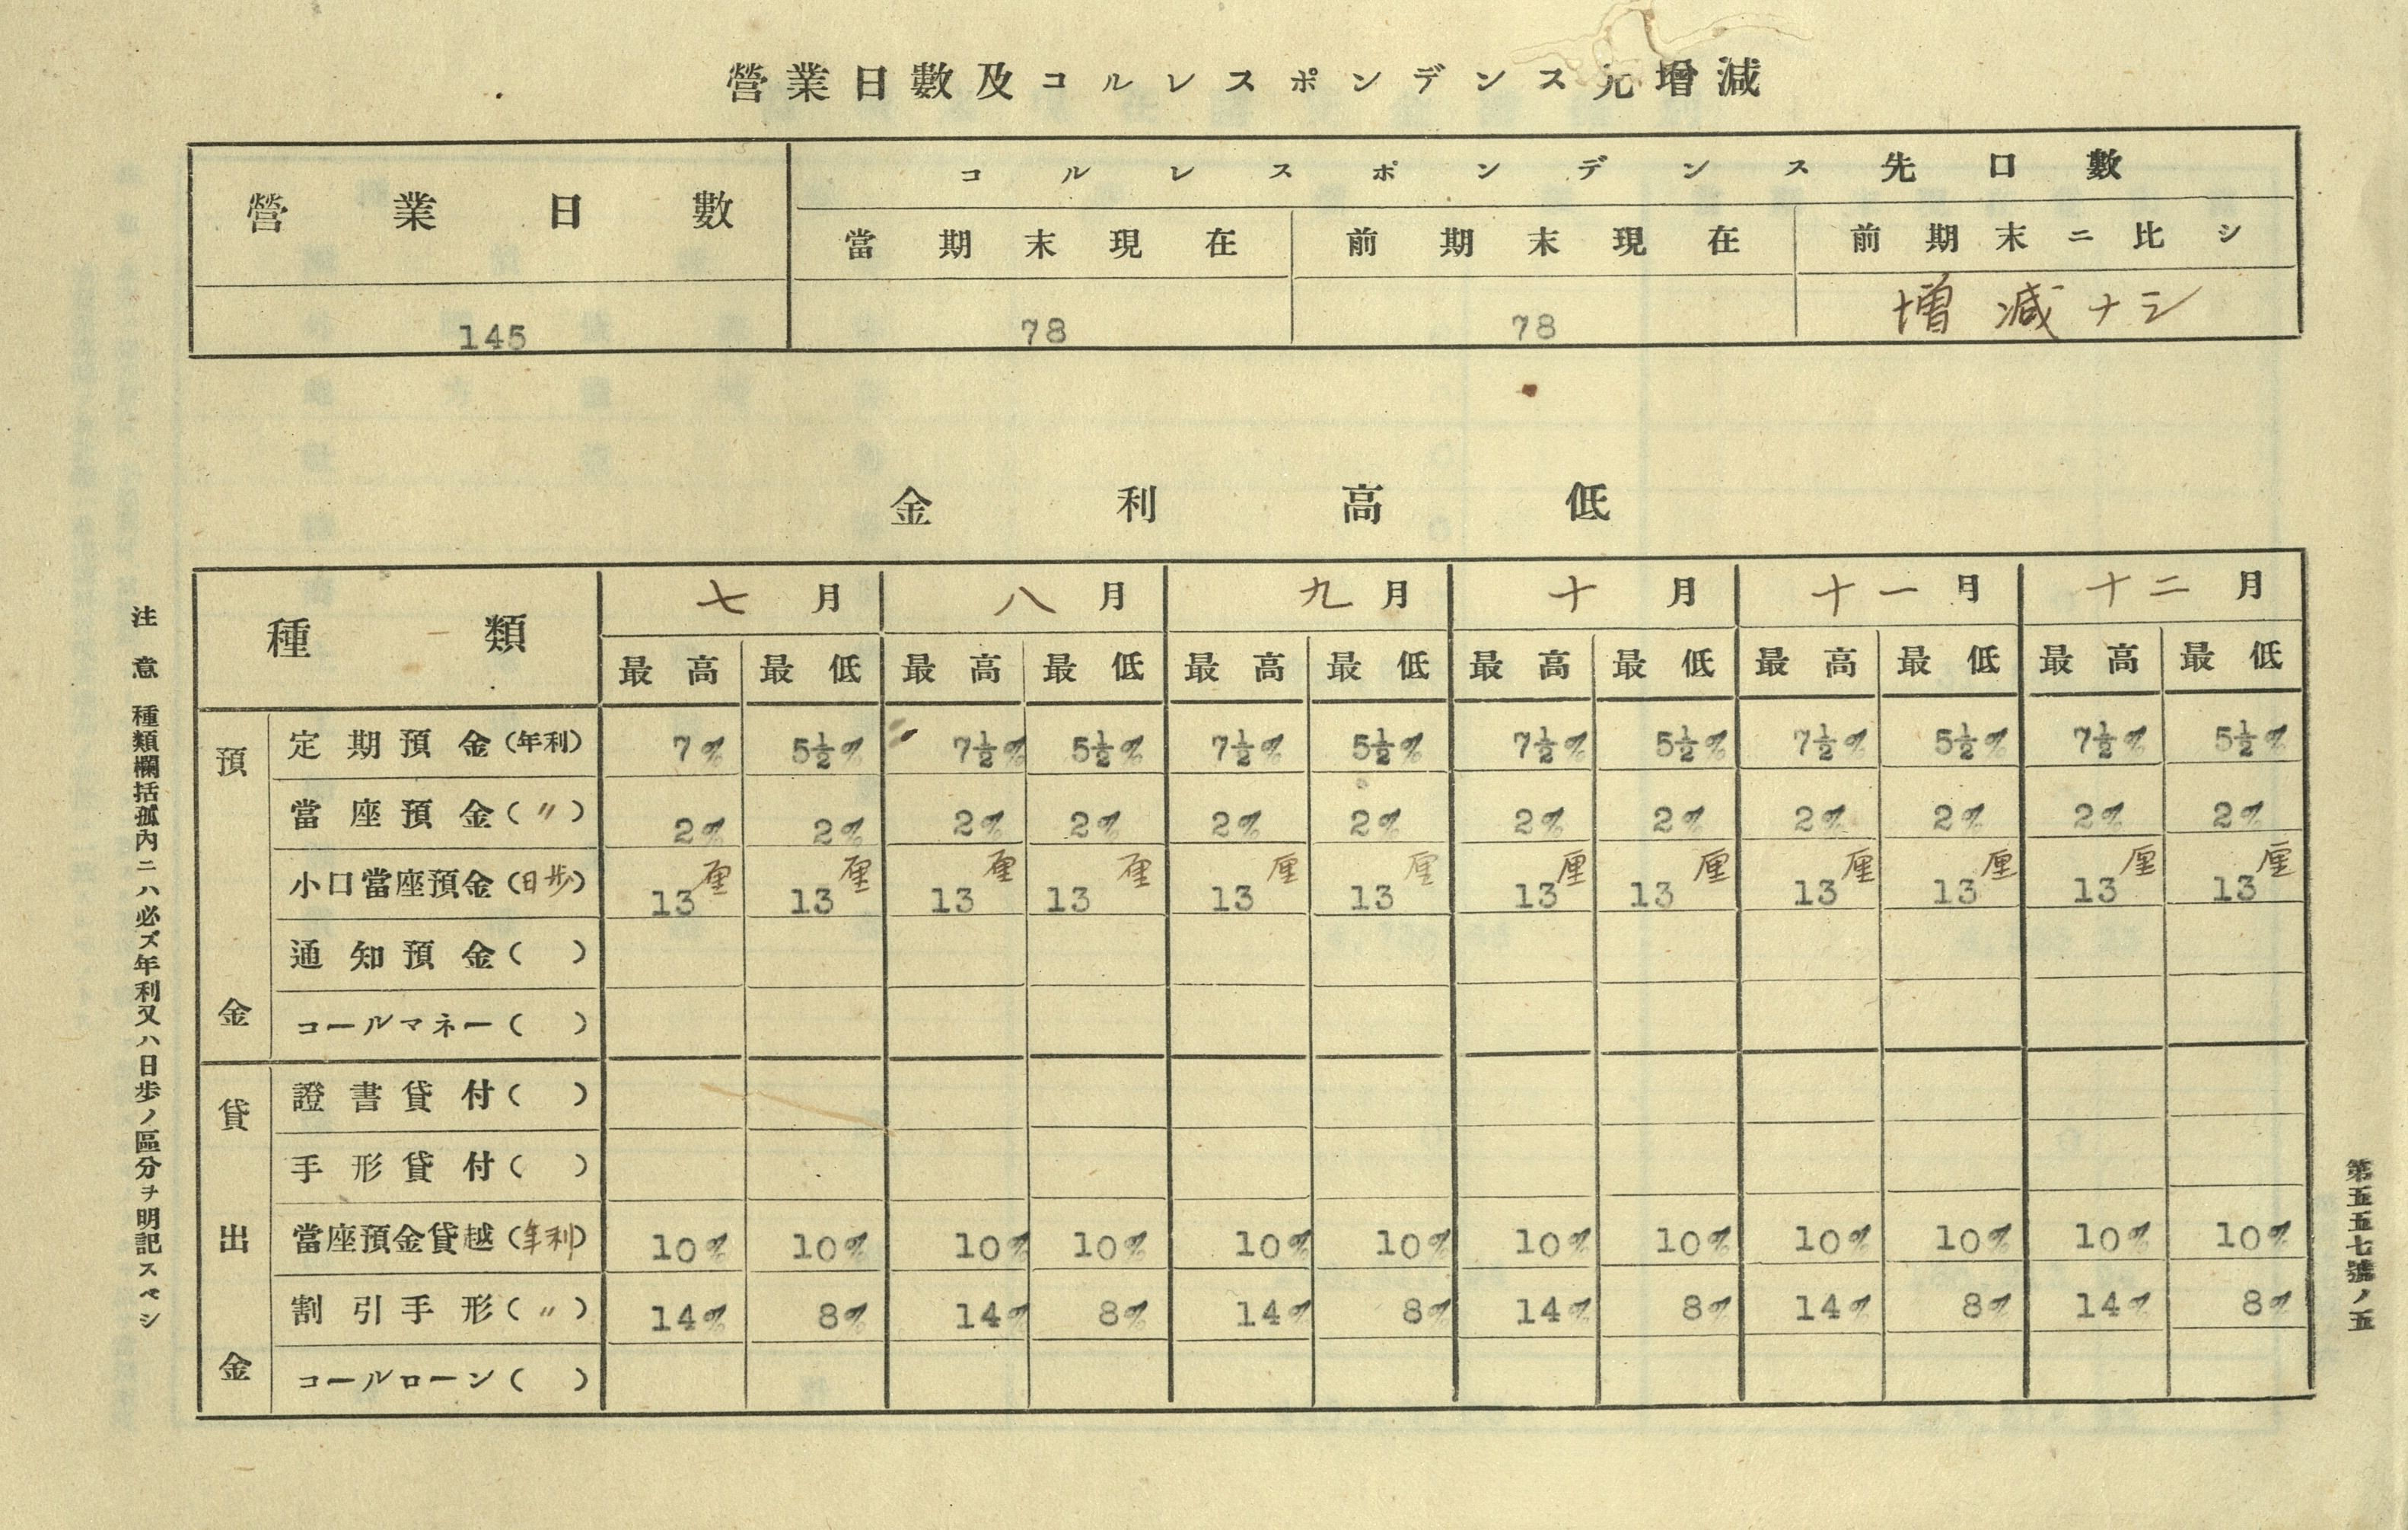 營業日數及コルレスポンデンス先增減
營業日數
コルレスポンデンス先口數
當期末現在 前期末現在 前期末ニ比シ
145 78 78 增減ナシ
金利高低
種類 七月 八月 九月 十月 十一月 十二月
最高 最低 最高 最低 最高 最低 最高 最低 最高 最低 最高 最低
預金
定期預金(年利) 7% 5½% 7½% 5½% 7½% 5½% 7½% 5½% 7½% 5½% 7½% 5½%
當座預金(〃) 2% 2% 2% 2% 2% 2% 2% 2% 2% 2% 2% 2%
小口當座預金(日步) 13厘 13厘 13厘 13厘 13厘 13厘 13厘 13厘 13厘 13厘 13厘 13厘
通知預金( )
コールマネー( )
貸出金
證書貸付( )
手形貸付( )
當座預金貸越(年利) 10% 10% 10% 10% 10% 10% 10% 10% 10% 10% 10% 10%
割引手形(〃) 14% 8% 14% 8% 14% 8% 14% 8% 14% 8% 14% 8%
コールローン( )
注意 種類欄括孤內ニハ必ズ年利又ハ日歩ノ區分ヲ明記スベシ
第五五七號ノ五